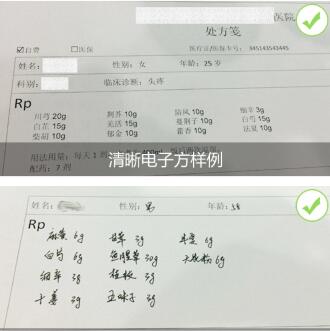 医院
处方笺
☑自费 □医保 医疗证/医保卡号: 345143543445
姓名: 性别: 女 年龄: 25 岁
科别: 临床诊断: 头疼
Rp
川芎 20g 荆芥 10g 防风 10g 细辛 3g
白芷 15g 羌活 15g 蔓荆子 10g 白芍 15g
柴胡 10g 郁金 10g 藿香 10g 法夏 10g
用法用量: 每天 1
配药: 7 剂
清晰电子方样例
姓名: 性别: 男 年龄: 58
Rp
麻黄 6g 甘草 3g 6g
白芍 6g 鱼腥草 30g 天花粉 6g
细辛 3g 桂枝 3g
干姜 3g 五味子 3g